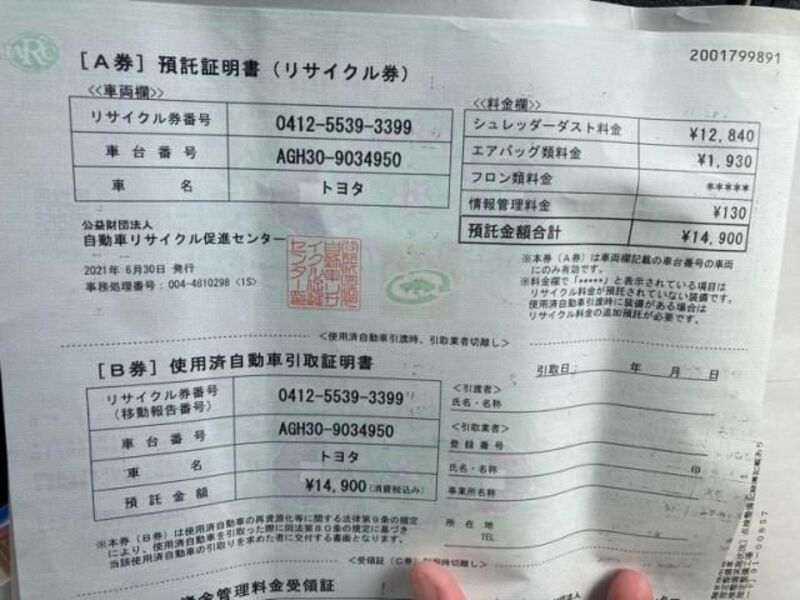 ARC
2001799891
[A券] 預託証明書(リサイクル券)
<<車両欄>>
リサイクル券番号 0412-5539-3399
車台番号 AGH30-9034950
車名 トヨタ
<<料金欄>>
シュレッダーダスト料金 ¥12,840
エアバッグ類料金 ¥1,930
フロン類料金 *****
情報管理料金 ¥130
預託金額合計 ¥14,900
公益財団法人
自動車リサイクル促進センター
2021年 6月30日 発行
事務処理番号:004-4810298 <1S>
※本券(A券)は車両欄記載の車台番号の車両
にのみ有効です。
※料金欄で「*****」と表示されている項目は
リサイクル料金が預託されていない装備です。
使用済自動車引渡時に装備がある場合は
リサイクル料金の追加預託が必要です。
<使用済自動車引渡時、引取業者切離し>
[B券] 使用済自動車引取証明書
引取日 年 月 日
リサイクル券番号
(移動報告番号) 0412-5539-3399
車台番号 AGH30-9034950
車名 トヨタ
預託金額 ¥14,900(消費税込み)
<引渡者>
氏名・名称
<引取業者>
登録番号
氏名・名称 印
事業所名称
所在地
TEL
※本券(B券)は使用済自動車の再資源化等に関する法律第9条の規定
により、使用済自動車を引取った際に同法第80条の規定に基づき
当該使用済自動車の引取りを求めた者に交付する書面となります。
<受領証(C券)
資金管理料金受領証